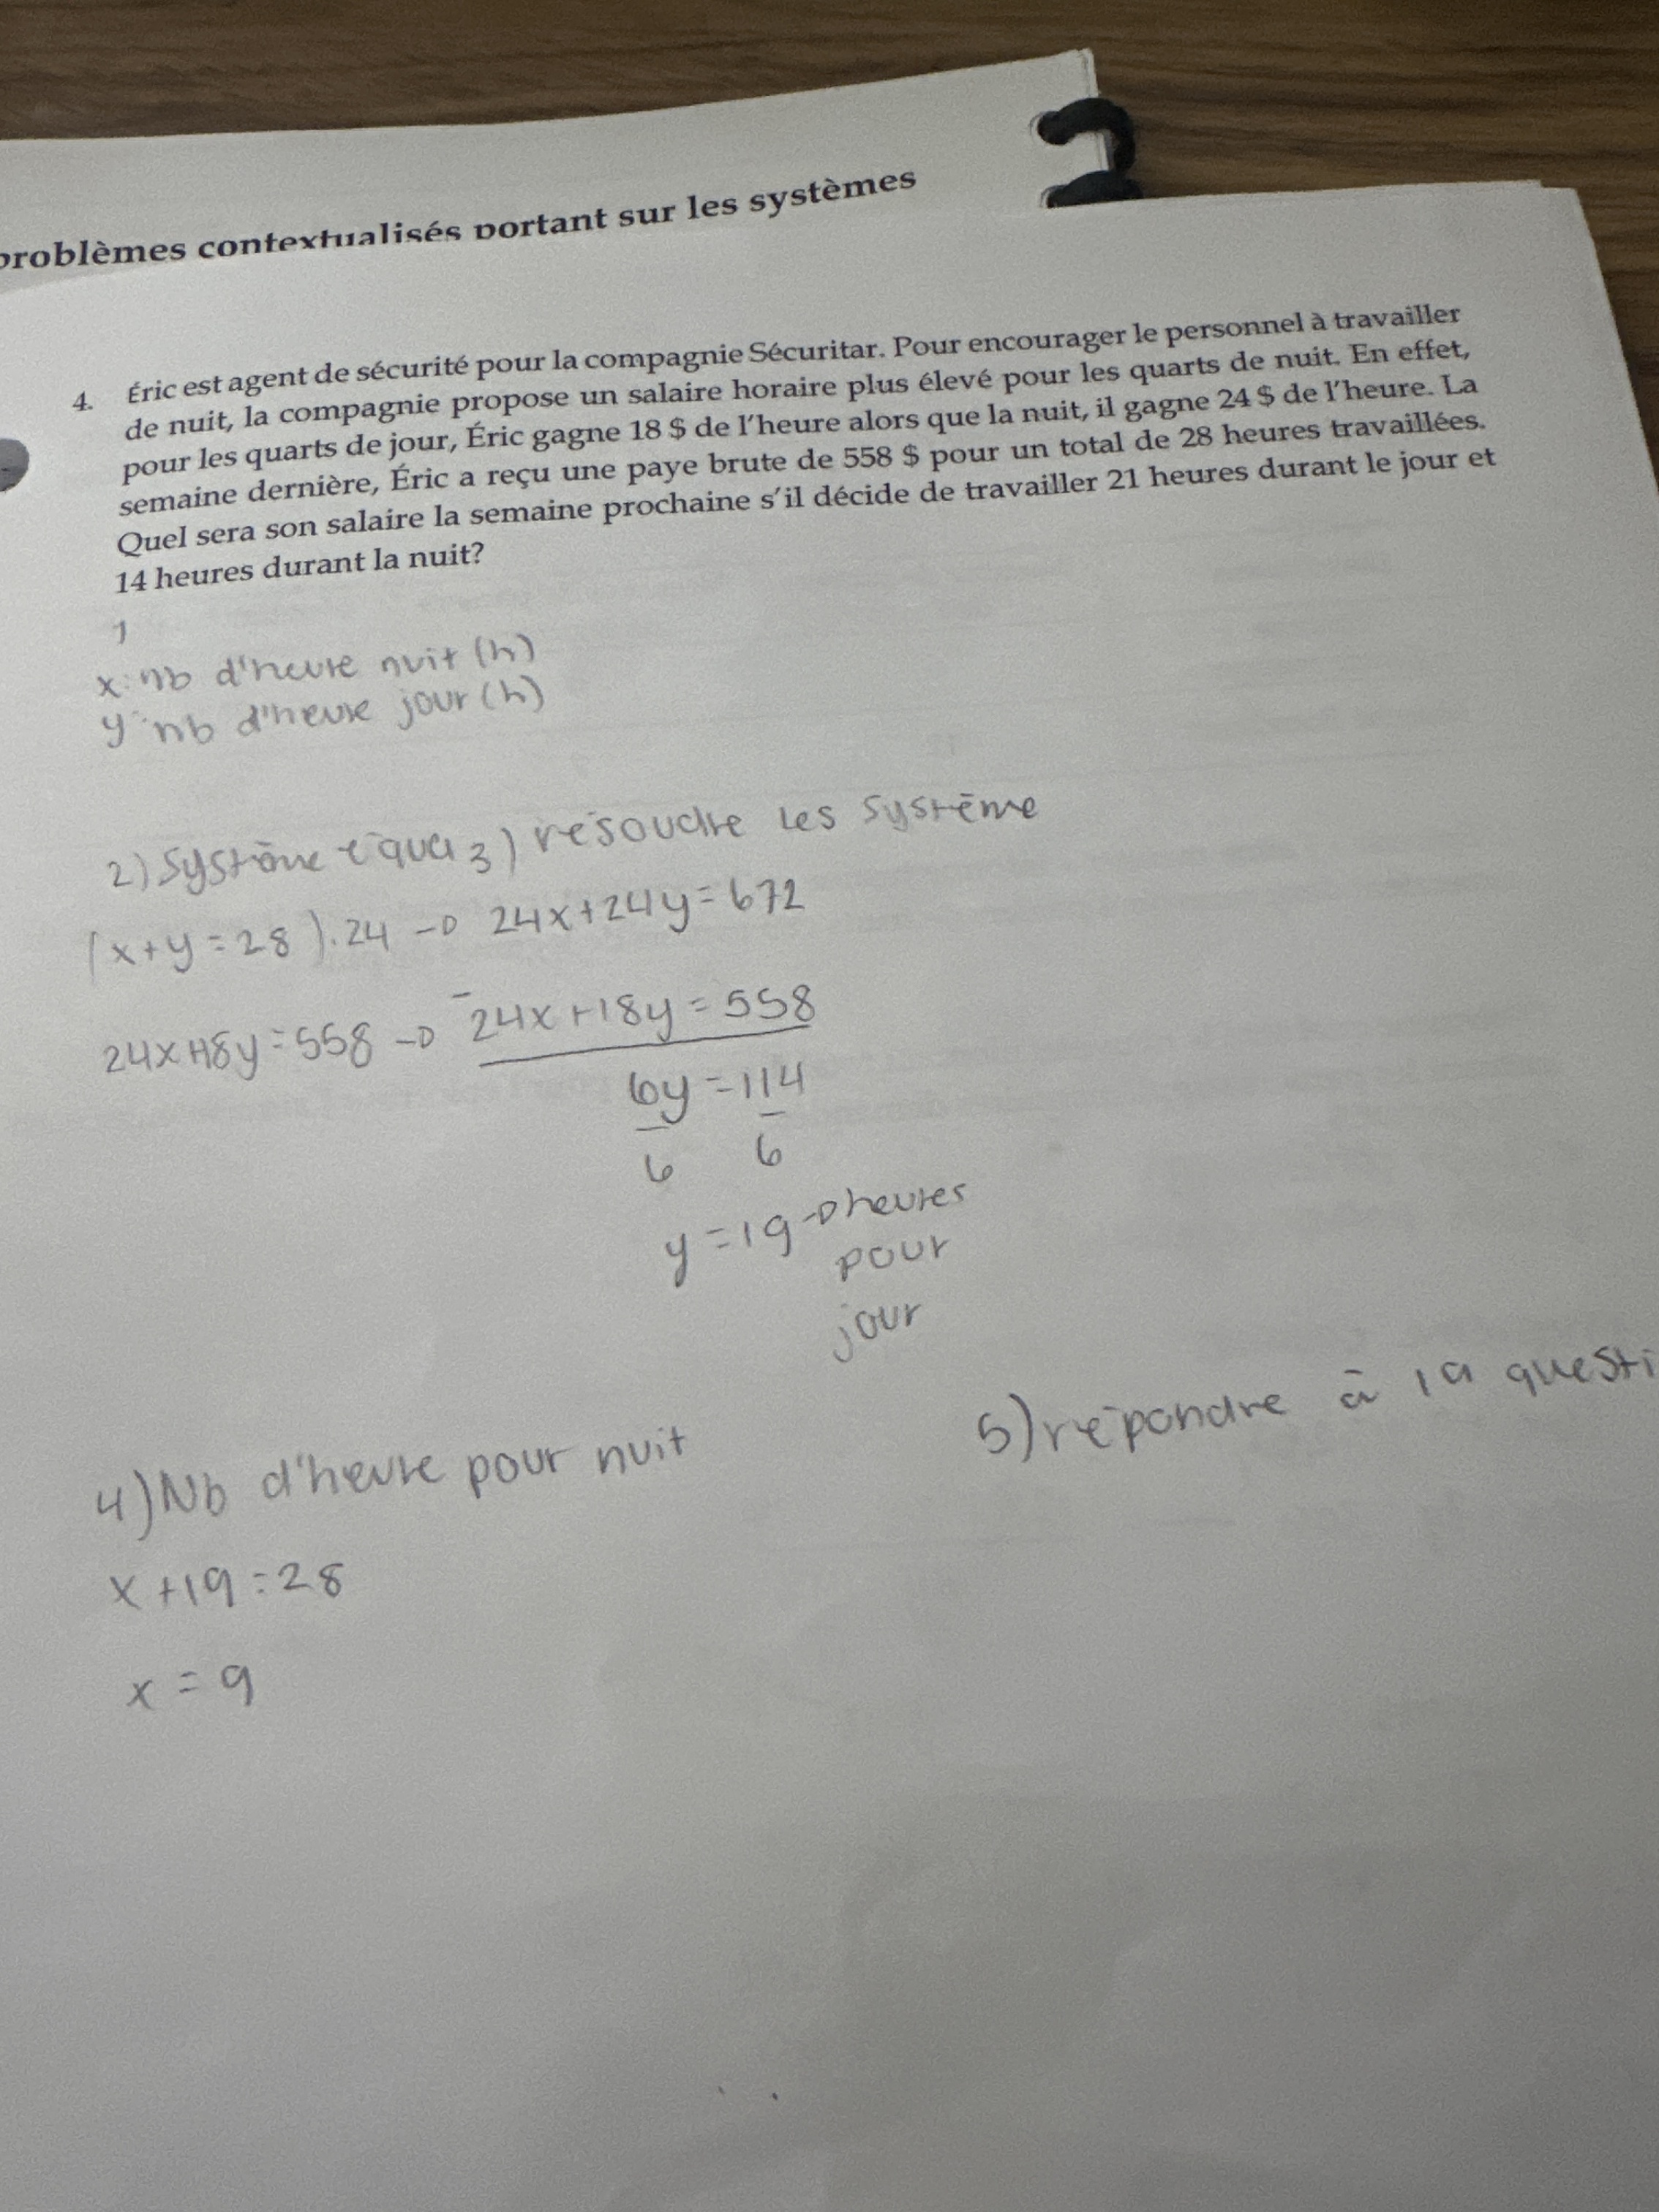 problèmes contextualisés portant sur les systèmes
4. Éric est agent de sécurité pour la compagnie Sécuritar. Pour encourager le personnel à travailler
de nuit, la compagnie propose un salaire horaire plus élevé pour les quarts de nuit. En effet,
pour les quarts de jour, Éric gagne 18 $ de l'heure alors que la nuit, il gagne 24 $ de l'heure. La
semaine dernière, Éric a reçu une paye brute de 558 $ pour un total de 28 heures travaillées.
Quel sera son salaire la semaine prochaine s'il décide de travailler 21 heures durant le jour et
14 heures durant la nuit?
1
x: nb d'heure nuit (h)
y: nb d'heure jour (h)
2) Systême équa 3) résoudre les système
(x+y=28).24 → 24x+24y=672
24x+18y=558 → -24x+18y=558
6y=114
6 6
y=19 → heures
pour
jour
4) Nb d'heure pour nuit
5) répondre à la questi
x+19=28
x=9